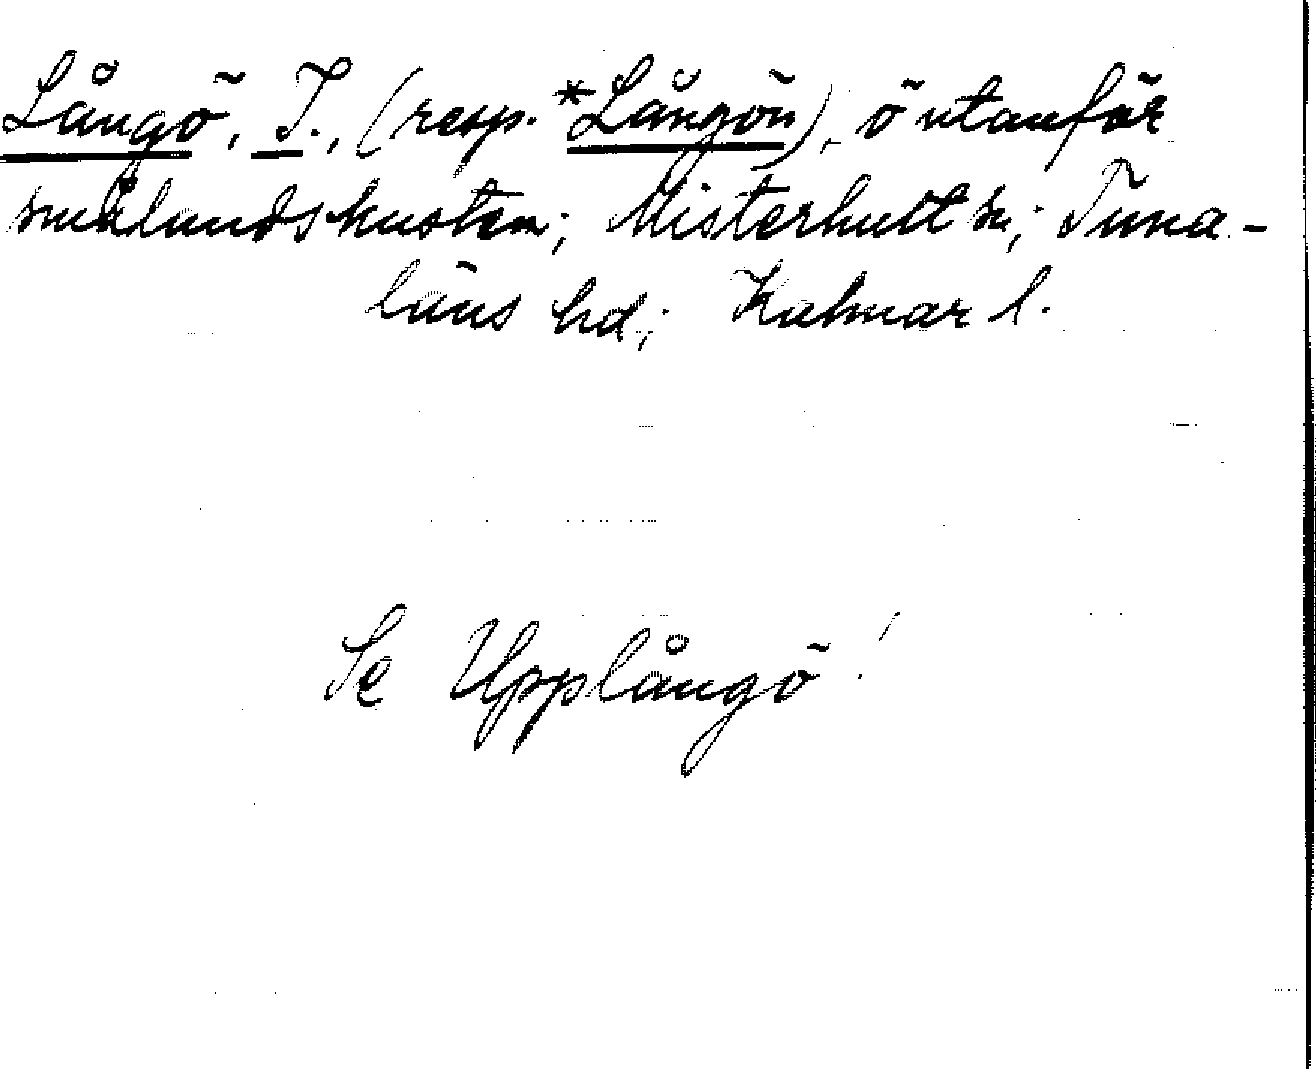 Långö, I., (resp. *Långön), ö utanför
smålandskusten; Misterhult sn; Tuna-
läns hd; Kalmar l.
Se Upplångö!